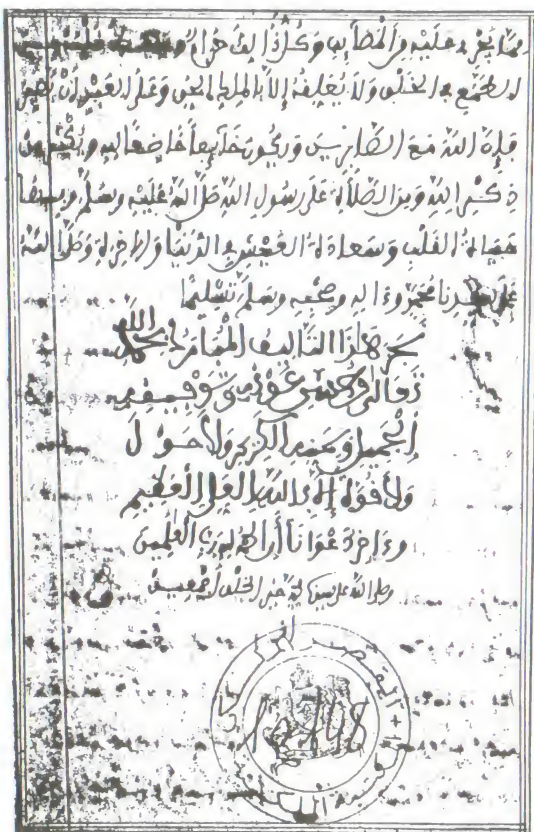 عليه من المصايب وكل ذالك حرام
الطمع في الخلق ولا يعلقه إلا بالملك الحق وعلى العبد ان يصبر
فإن الله مع الصابرين ويكون خاضعا لله ويكثر من
ذكر الله ومن الصلاة على رسول الله صلى الله عليه وسلم وبهما
حياة القلب وسعادة العيش في الدنيا والاخرة وصلى الله
على سيدنا محمد وءاله وصحبه وسلم تسليما
نجز هاذا التاليف المبارك بحمد الله
تعالى وحسن عونه وتوفيقه
الجميل ولا حول
ولا قوة إلا بالله العلي العظيم
وءاخر دعوانا أن الحمد لله رب العلمين
وصلى الله على سيدنا محمد خير الخلق أجمعين
القصر